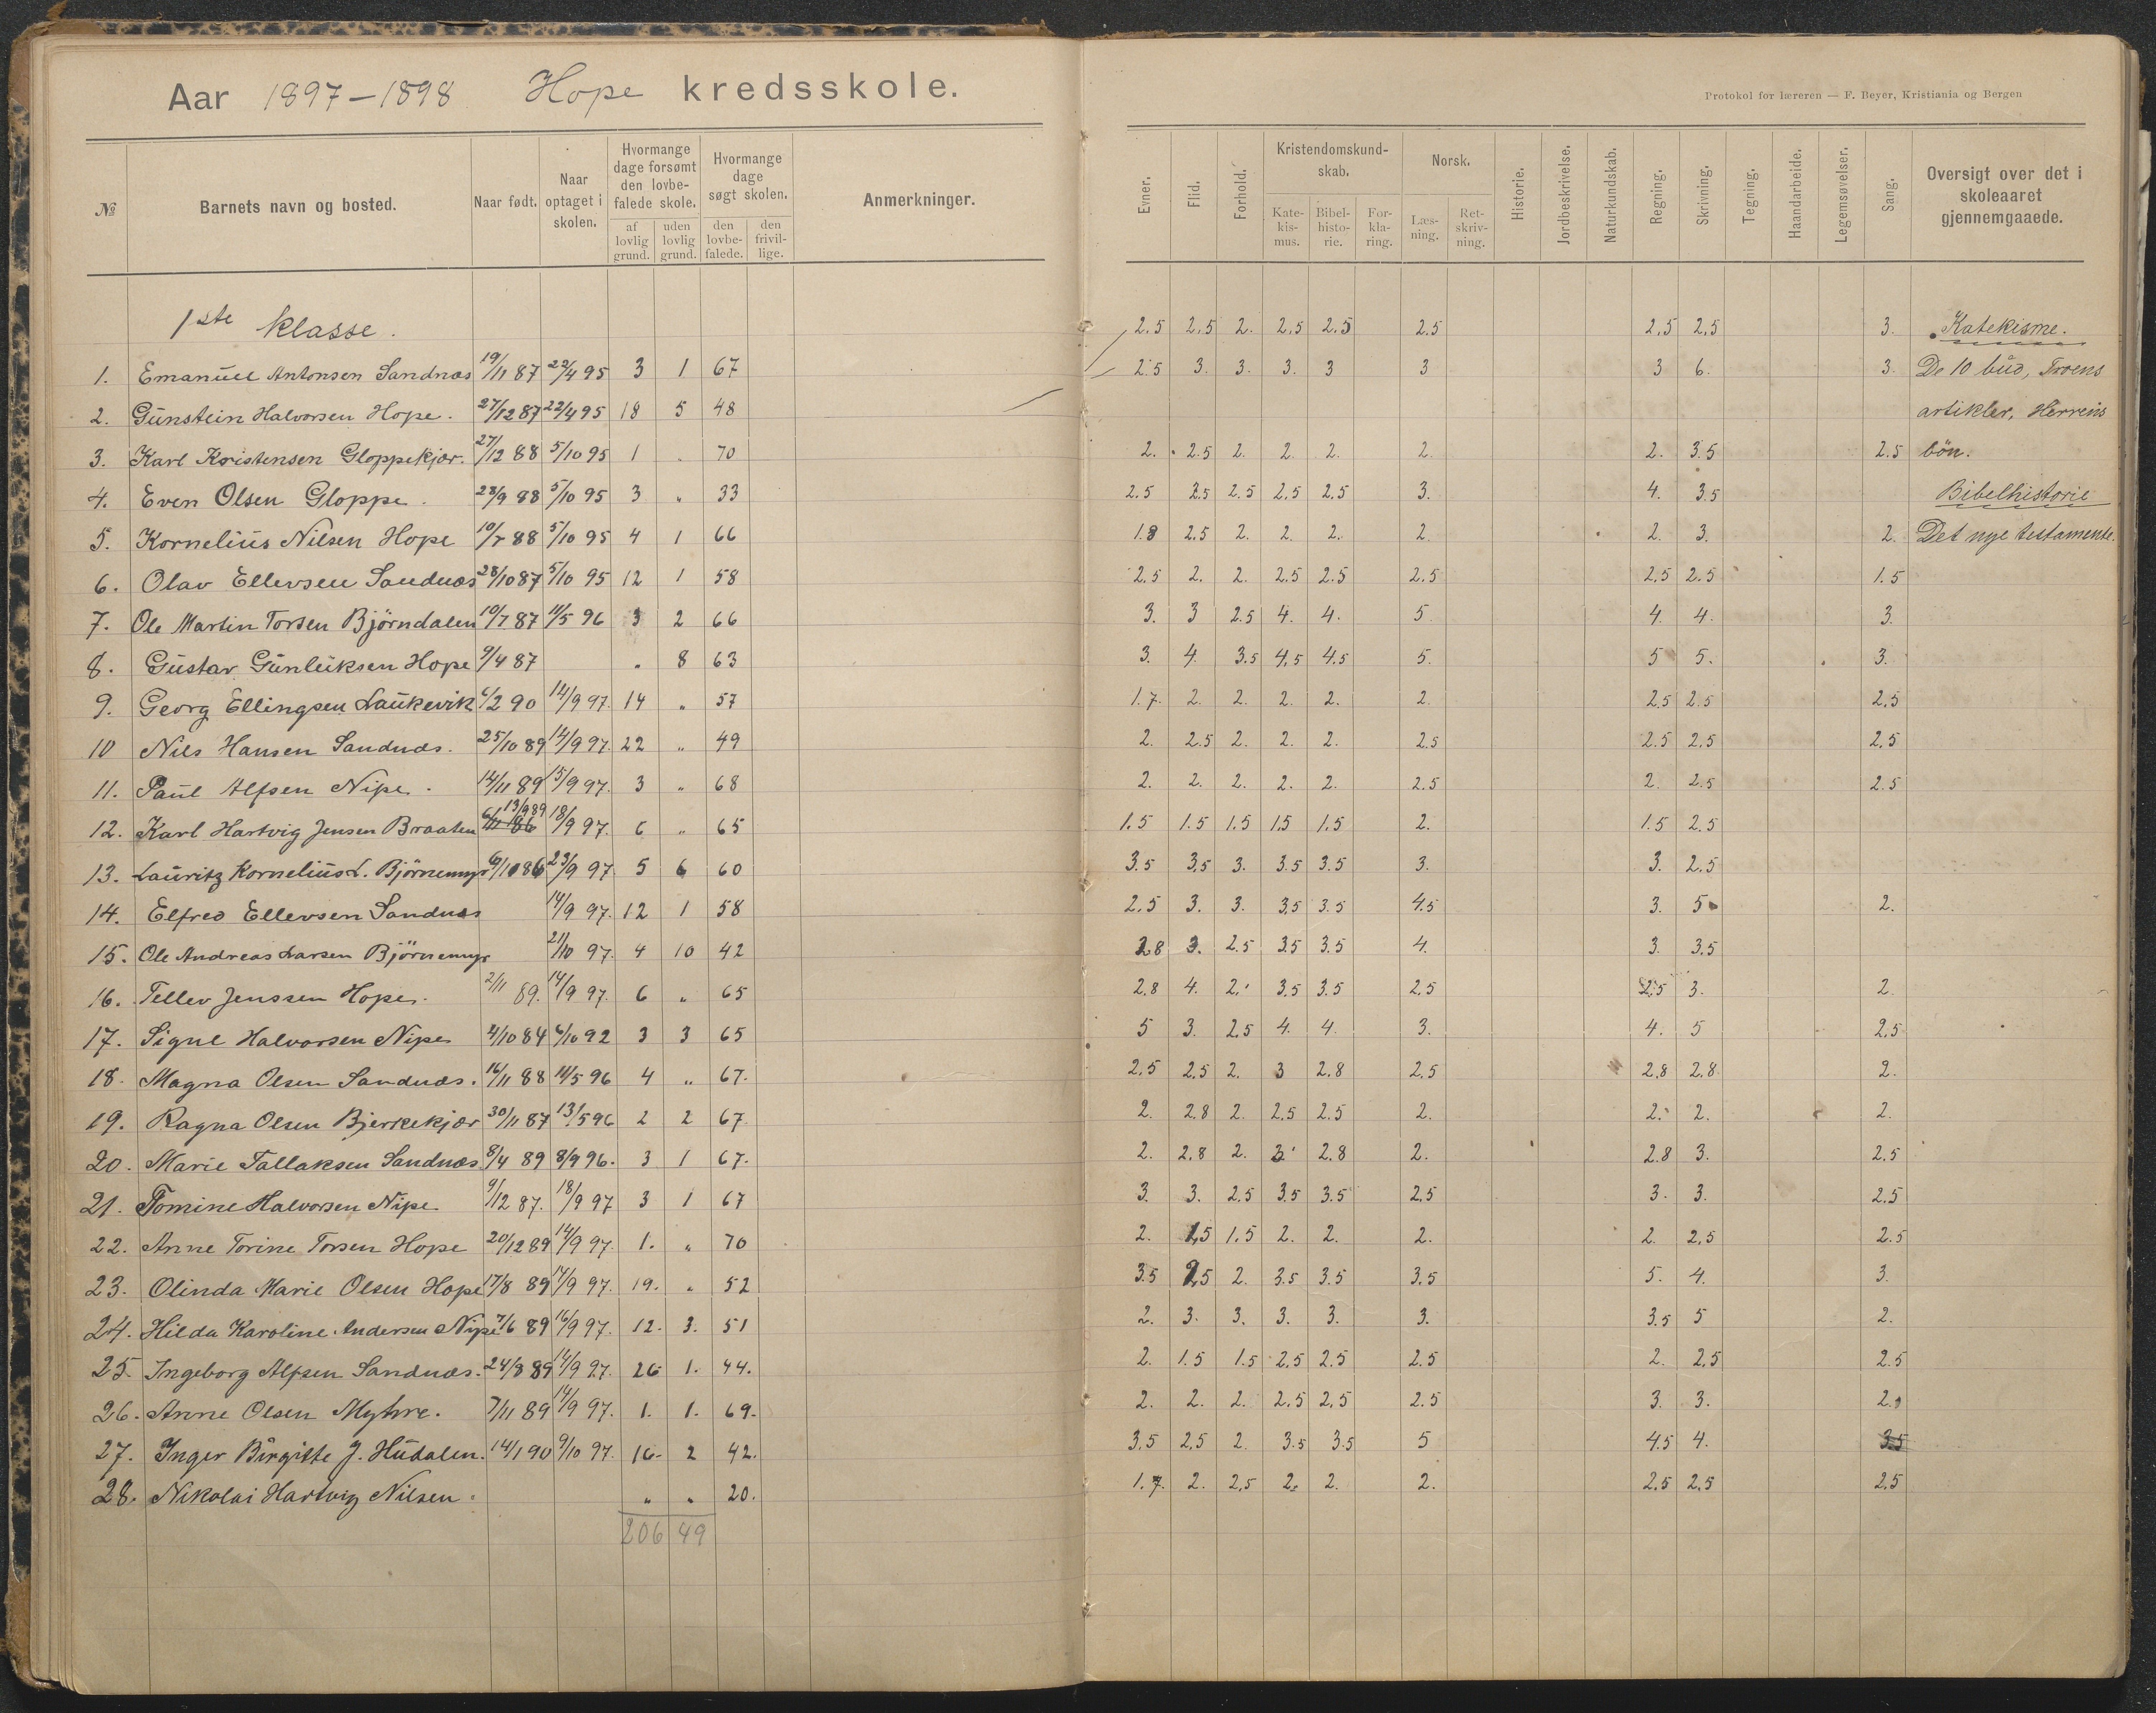 Aar 1897-1898 Hope kredsskole.
№ Barnets navn og bosted. Naar født. Naar optaget i skolen. Hvormange dage forsømt den lovbefalede skole. af lovlig grund. uden lovlig grund. Hvormange dage søgt skolen. den lovbefalede. den frivillige. Anmerkninger.
1ste klasse.
1. Emanuel Antonsen Sandnæs 19/11 87 22/4 95 3 1 67
2. Gunstein Halvorsen Hope. 27/12 87 22/4 95 18 5 48
3. Karl Kristensen Gloppekjær. 27/12 88 5/10 95 1 . 70
4. Even Olsen Gloppe. 28/9 88 5/10 95 3 " 33
5. Kornelius Nilsen Hope 10/7 88 5/10 95 4 1 66
6. Olav Ellevsen Sandnæs 28/10 87 5/10 95 12 1 58
7. Ole Martin Torsen Björndalen 10/7 87 11/5 96 3 2 66
8. Gustav Gunleiksen Hope 9/4 87 " 8 63
9. Georg Ellingsen Laukevik 6/2 90 14/9 97. 14 " 57
10 Nils Hansen Sandnæs. 25/10 89 14/9 97. 22 " 49
11. Paul Alfsen Nipe. 14/11 89 15/9 97. 3 " 68
12. Karl Hartvig Jensen Braaten 6/11 86 13/9 89 18/9 97. 6 " 65
13. Lauritz Kornelius L. Björnemyr 6/10 86 23/9 97 5 6 60
14. Elfred Ellevsen Sandnæs 14/9 97. 12 1 58
15. Ole Andreas Larsen Björnemyr 21/10 97. 4 10 42
16. Tellev Jenssen Hope. 2/11 89. 14/9 97. 6 " 65
17. Signe Halvorsen Nipe 4/10 84 6/10 92 3 3 65
18. Magna Olsen Sandnæs. 16/11 88 11/5 96 4 " 67.
19. Ragna Olsen Bjerkekjær 30/11 87 13/5 96 2 2 67
20. Marie Tallaksen Sandnæs 8/4 89 8/9 96. 3 1 67.
21. Tomine Halvorsen Nipe 9/12 87. 18/9 97 3 1 67
22. Anne Torine Torsen Hope 20/12 89 14/9 97. 1. " 70
23. Olinda Marie Olsen Hope 17/8 89 14/9 97. 19. " 52
24. Hilda Karoline Andersen Nipe 7/6 89 16/9 97. 12. 3. 51
25. Ingeborg Alfsen Sandnæs. 24/8 89 14/9 97. 26 1. 44.
26. Anne Olsen Myhre. 7/11 89 14/9 97. 1. 1. 69.
27. Inger Birgitte J. Hudalen. 14/1 90 9/10 97. 16- 2 42.
28. Nikolai Hartvig Nilsen. " " 20.
206 49
Protokol for læreren — F. Beyer, Kristiania og Bergen
Evner. Flid. Forhold. Kristendomskundskab. Katekismus. Bibelhistorie. Forklaring. Norsk. Læsning. Retskrivning. Historie. Jordbeskrivelse. Naturkundskab. Regning. Skrivning. Tegning. Haandarbeide. Legemsøvelser. Sang. Oversigt over det i skoleaaret gjennemgaaede.
2.5 2.5 2. 2.5 2.5 2.5 2.5 2.5 3. Katekisme.
2.5 3. 3. 3. 3 3 3 6. 3. De 10 bud, Troens
artikler, Herrens
2. 2.5 2. 2. 2. 2. 2. 3.5 2.5 bön.
2.5 2.5 2.5 2.5 2.5 3. 4. 3.5 Bibelhistorie
1.8 2.5 2. 2. 2. 2. 2. 3. 2. Det nye testamente.
2.5 2. 2. 2.5 2.5 2.5 2.5 2.5 1.5
3. 3 2.5 4. 4. 5. 4. 4. 3.
3. 4. 3.5 4.5 4.5 5. 5 5. 3.
1.7. 2. 2. 2. 2. 2. 2.5 2.5 2.5
2. 2.5 2. 2. 2. 2.5 2.5 2.5 2.5
2. 2. 2. 2. 2. 2.5 2. 2.5 2.5
1.5 1.5 1.5 1.5 1.5 2. 1.5 2.5
3.5 3.5 3. 3.5 3.5 3. 3. 2.5
2.5 3. 3. 3.5 3.5 4.5 3. 5 2.
2.8 3. 2.5 3.5 3.5 4. 3. 3.5
2.8 4. 2. 3.5 3.5 2.5 2.5 3. 2.
5 3. 2.5 4. 4. 3. 4. 5 2.5
2.5 2.5 2. 3 2.8 2.5 2.8 2.8 2.
2. 2.8 2. 2.5 2.5 2. 2. 2. 2.
2. 2.8 2. 3 2.8 2. 2.8 3. 2.5
3. 3. 2.5 3.5 3.5 2.5 3. 3. 2.5
2. 1.5 1.5 2. 2. 2. 2. 2.5 2.5
3.5 2.5 2. 3.5 3.5 3.5 5. 4. 3.
2. 3. 3. 3. 3. 3. 3.5 5 2.
2. 1.5 1.5 2.5 2.5 2.5 2. 2.5 2.5
2. 2. 2. 2.5 2.5 2.5 3. 3. 2.
3.5 2.5 2. 3.5 3.5 5 4.5 4. 3.5
1.7. 2. 2.5 2. 2. 2. 2.5 2.5 2.5